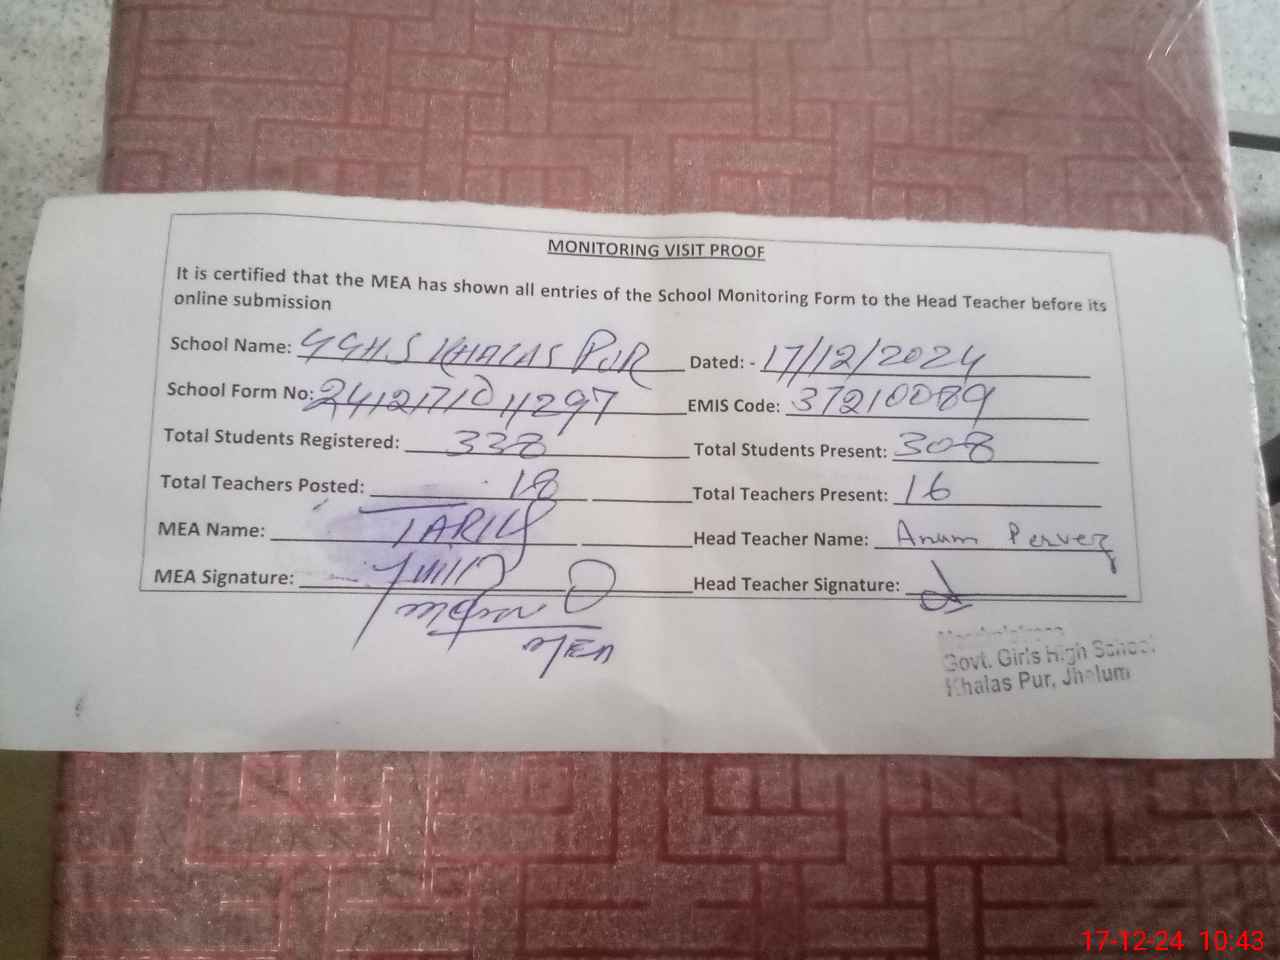 MONITORING VISIT PROOF
It is certified that the MEA has shown all entries of the School Monitoring Form to the Head Teacher before its
online submission
School Name: GGHS KHALAS PUR Dated: - 17/12/2024
School Form No: 24121710 11297 EMIS Code: 37210089
Total Students Registered: 338 Total Students Present: 308
Total Teachers Posted: 18 Total Teachers Present: 16
MEA Name: TARIQ Head Teacher Name: Anum Pervez
MEA Signature: Head Teacher Signature:
MEA
Govt. Girls High School
Khalas Pur, Jhelum
17-12-24 10:43